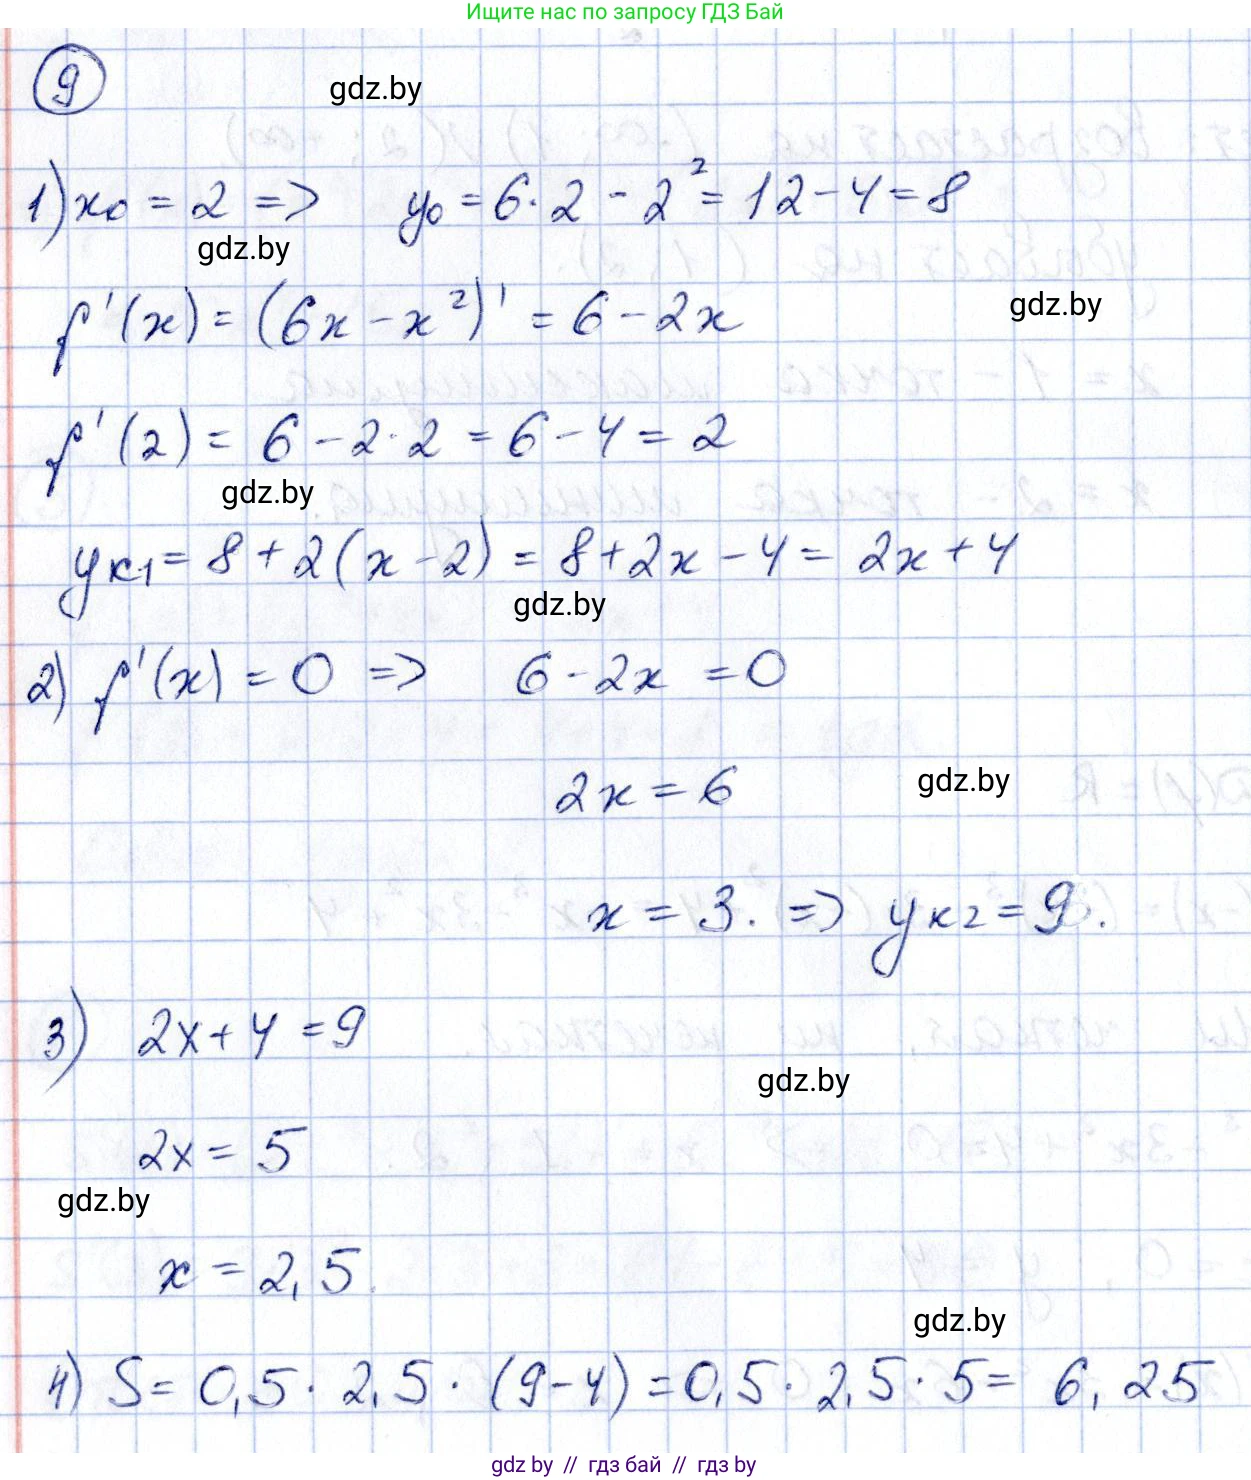 Ищите нас по запросу ГДЗ Бай
9
gdz.by
1) x₀ = 2 => y₀ = 6·2 - 2² = 12 - 4 = 8
gdz.by
f'(x) = (6x - x²)' = 6 - 2x
gdz.by
f'(2) = 6 - 2·2 = 6 - 4 = 2
gdz.by
yк₁ = 8 + 2(x - 2) = 8 + 2x - 4 = 2x + 4
gdz.by
2) f'(x) = 0 => 6 - 2x = 0
2x = 6
gdz.by
x = 3. => yк₂ = 9.
3) 2x + 4 = 9
gdz.by
2x = 5
gdz.by
x = 2,5.
gdz.by
4) S = 0,5 · 2,5 · (9 - 4) = 0,5 · 2,5 · 5 = 6,25
gdz by // гдз бай // гдз by